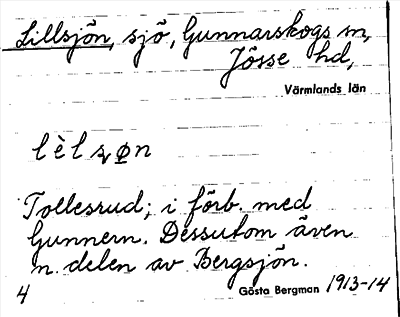 Lillsjön, sjö, Gunnarskogs sn,
Jösse hd,
Värmlands län
lèlsøn
Tollesrud; i förb. med
Gunnern. Dessutom även
n. delen av Bergsjön.
4 Gösta Bergman 1913-14